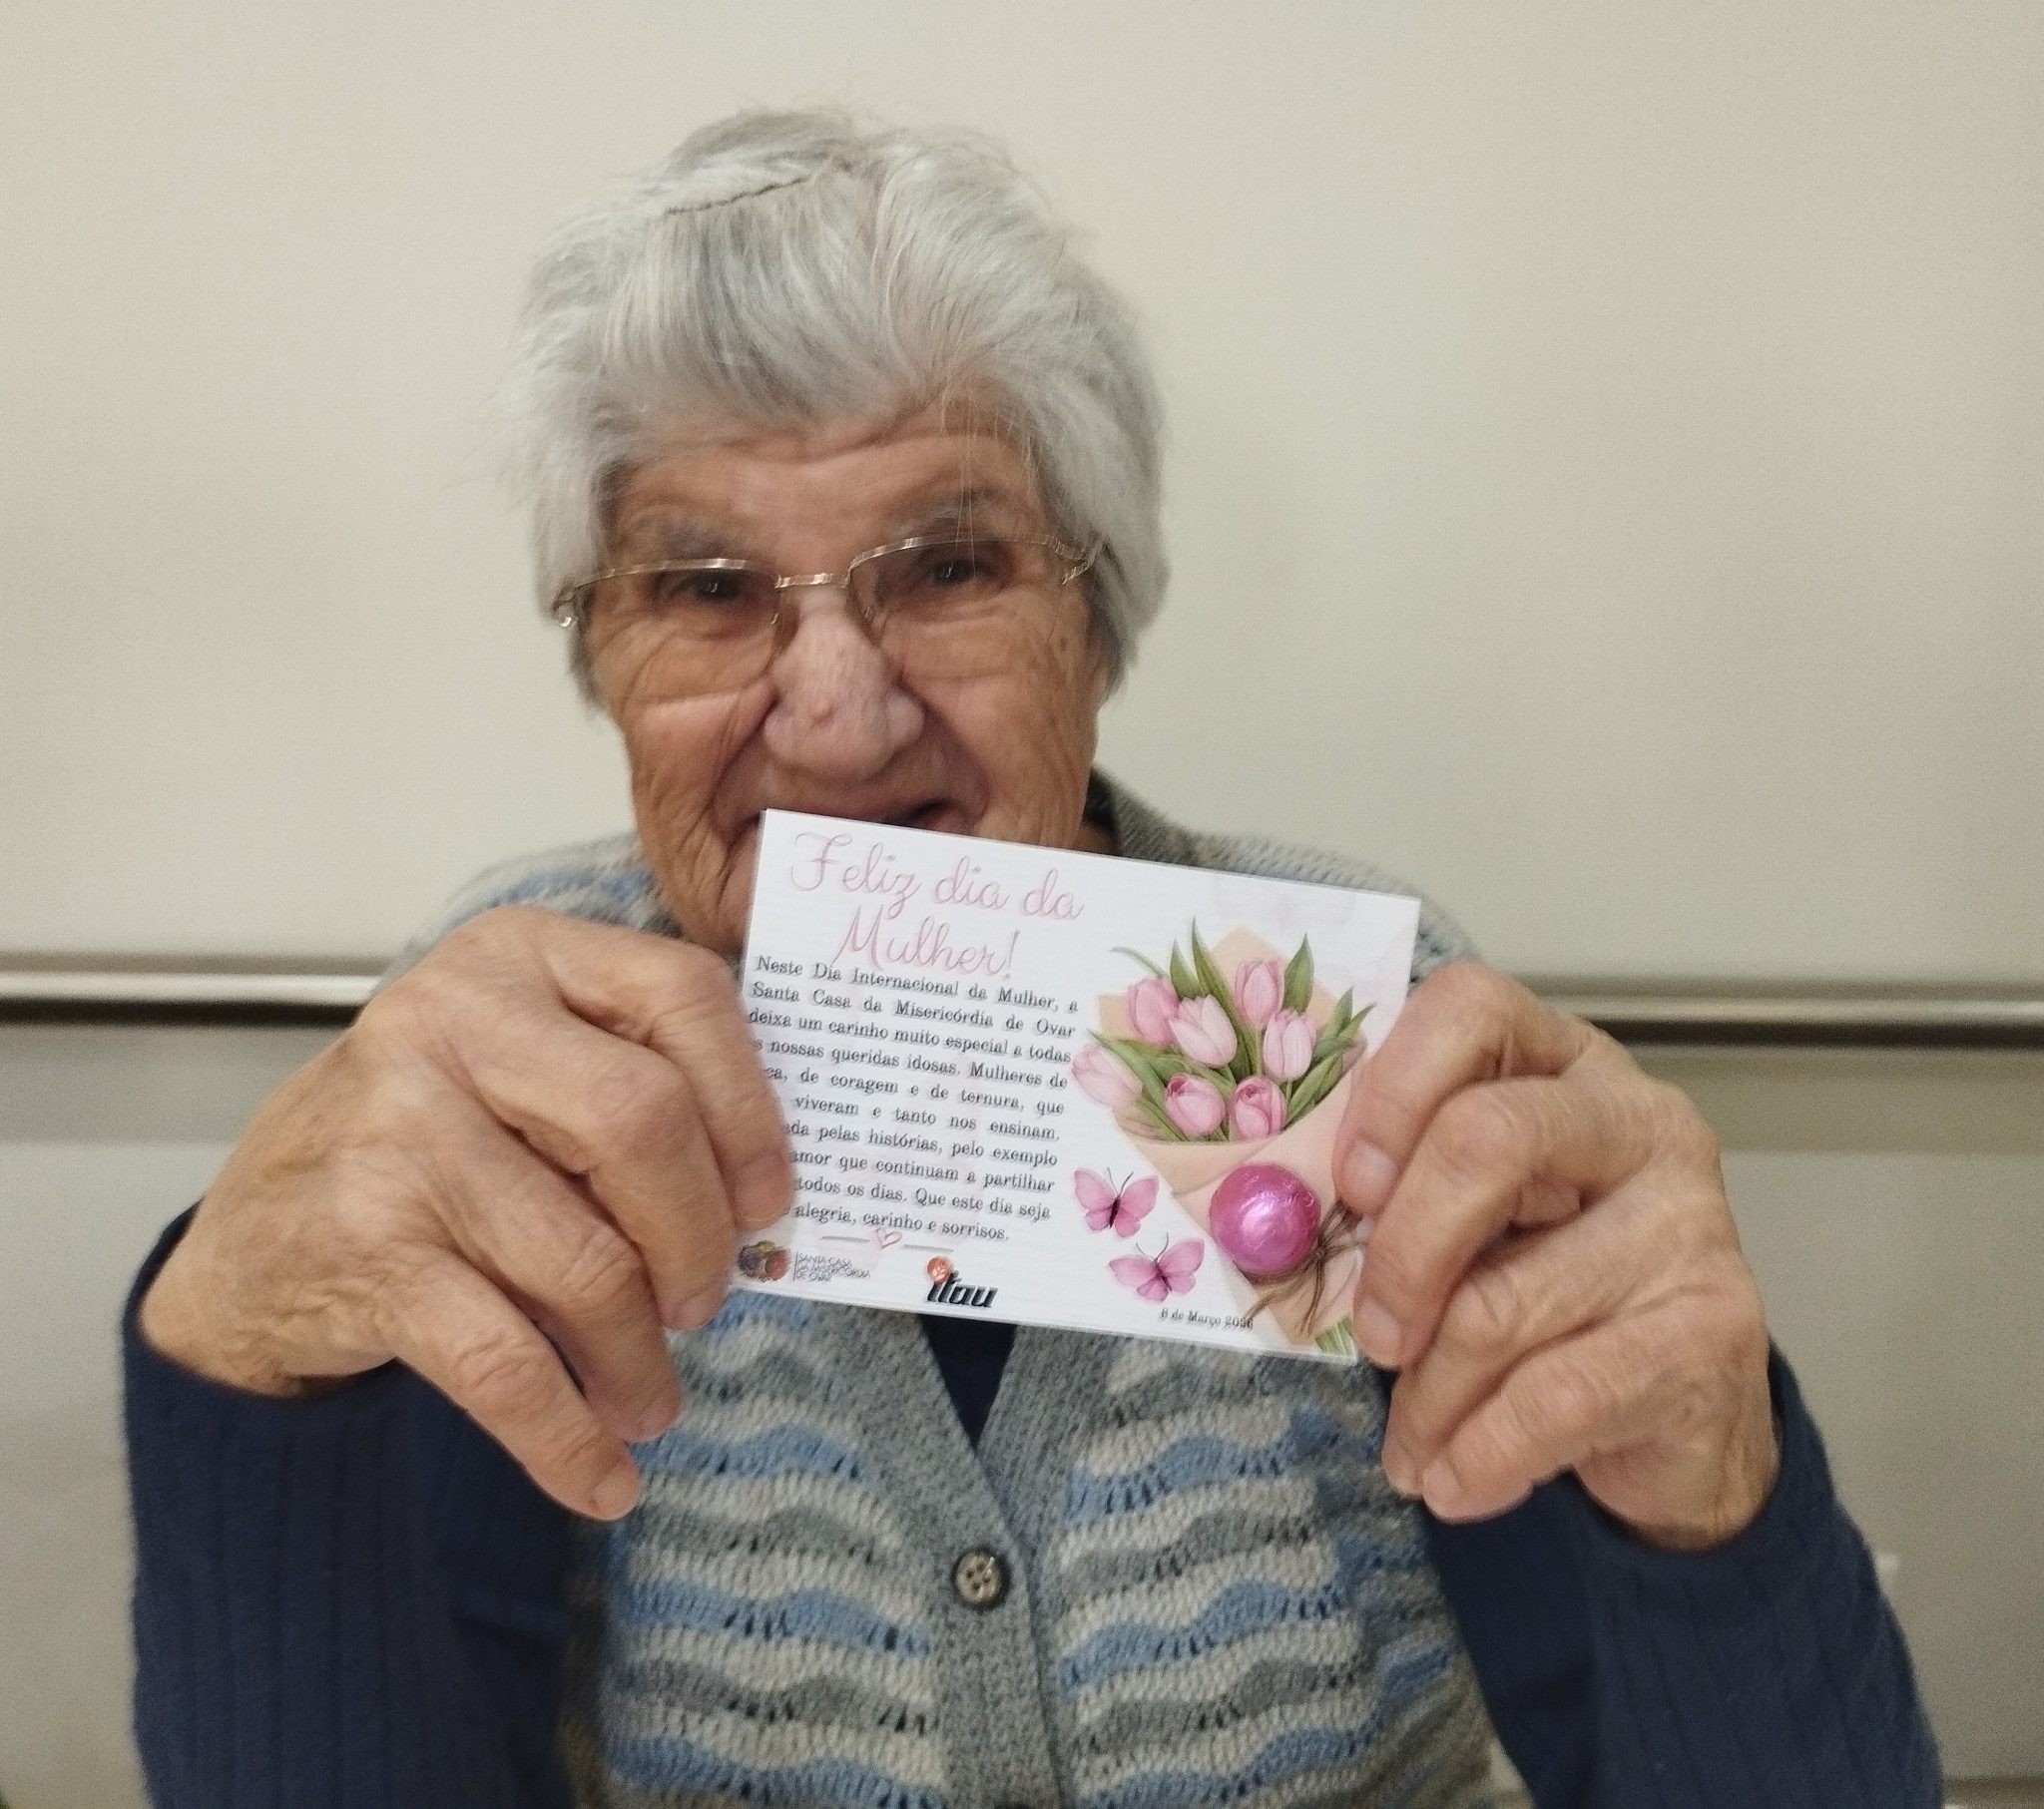 Feliz dia da
Mulher!
Neste Dia Internacional da Mulher, a
Santa Casa da Misericórdia de Ovar
deixa um carinho muito especial a todas
s nossas queridas idosas. Mulheres de
ça, de coragem e de ternura, que
viveram e tanto nos ensinam.
da pelas histórias, pelo exemplo
amor que continuam a partilhar
todos os dias. Que este dia seja
alegria, carinho e sorrisos.
SANTA CASA
DA MISERICÓRDIA
DE OVAR
itau
8 de Março 2026